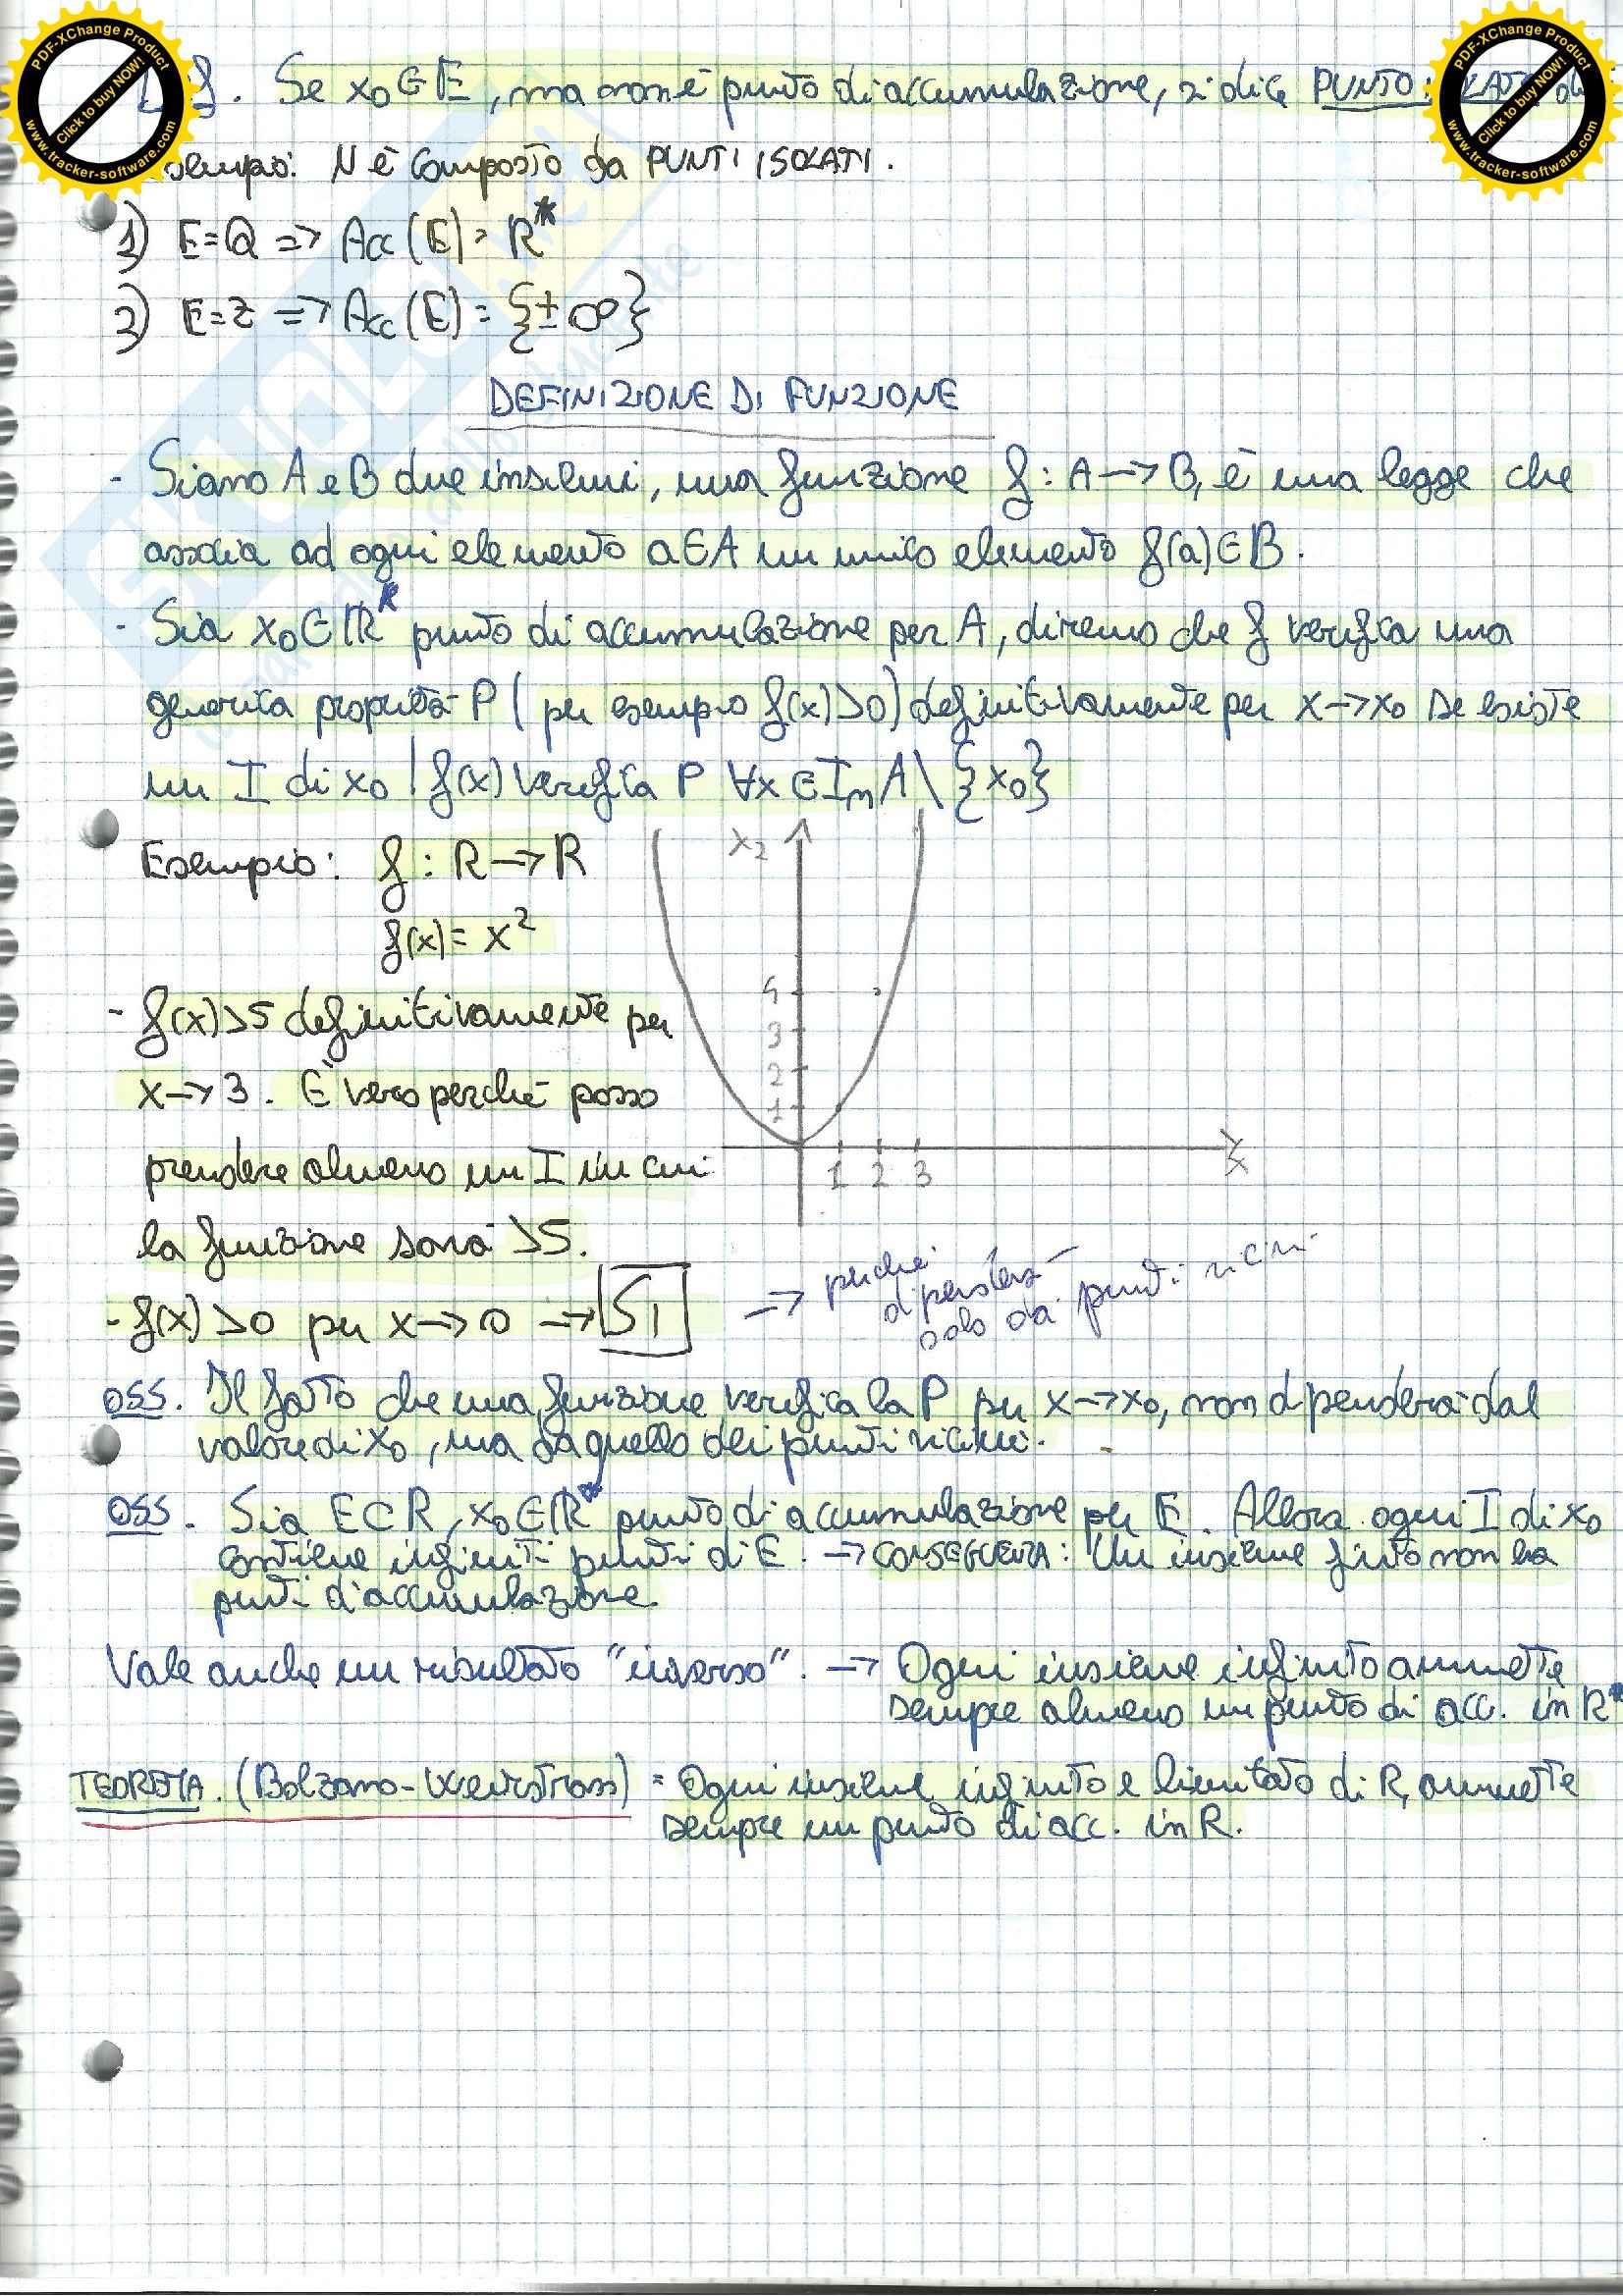 PDF-XChange Product
Click to buy NOW!
www.tracker-software.com
PDF-XChange Product
Click to buy NOW!
www.tracker-software.com
f. Se x₀∈E, ma non è punto di accumulazione, si dice PUNTO
N è composto da PUNTI ISOLATI.
1) E=Q => Acc(E)= R*
2) E=Z => Acc(E)= {±∞}
DEFINIZIONE DI FUNZIONE
- Siano A e B due insiemi, una funzione f: A→B, è una legge che
associa ad ogni elemento a∈A un unico elemento f(a)∈B.
- Sia x₀∈R* punto di accumulazione per A, diremo che f verifica una
generica proprietà P (per esempio f(x)>0) definitivamente per x→x₀ se esiste
un I di x₀ | f(x) verifica P ∀x∈I∩A\{x₀}
Esempio: f: R→R
f(x)= x²
x₂
4
3
2
1
1 2 3
x
- f(x)>5 definitivamente per
x→3. È vero perché posso
prendere almeno un I in cui
la funzione sarà >5.
- f(x)>0 per x→0 → SI → perché
dipenderà
solo da punti vicini
OSS. Il fatto che una funzione verifica la P per x→x₀, non dipenderà dal
valore di x₀, ma da quello dei punti vicini.
OSS. Sia E⊂R, x₀∈R* punto di accumulazione per E. Allora ogni I di x₀
contiene infiniti punti di E. → CONSEGUENZA: Un insieme finito non ha
punti d'accumulazione.
Vale anche un risultato "inverso". → Ogni insieme infinito ammette
sempre almeno un punto di acc. in R*
TEOREMA. (Bolzano-Weirstrass) = Ogni insieme infinito e limitato di R, ammette
sempre un punto di acc. in R.